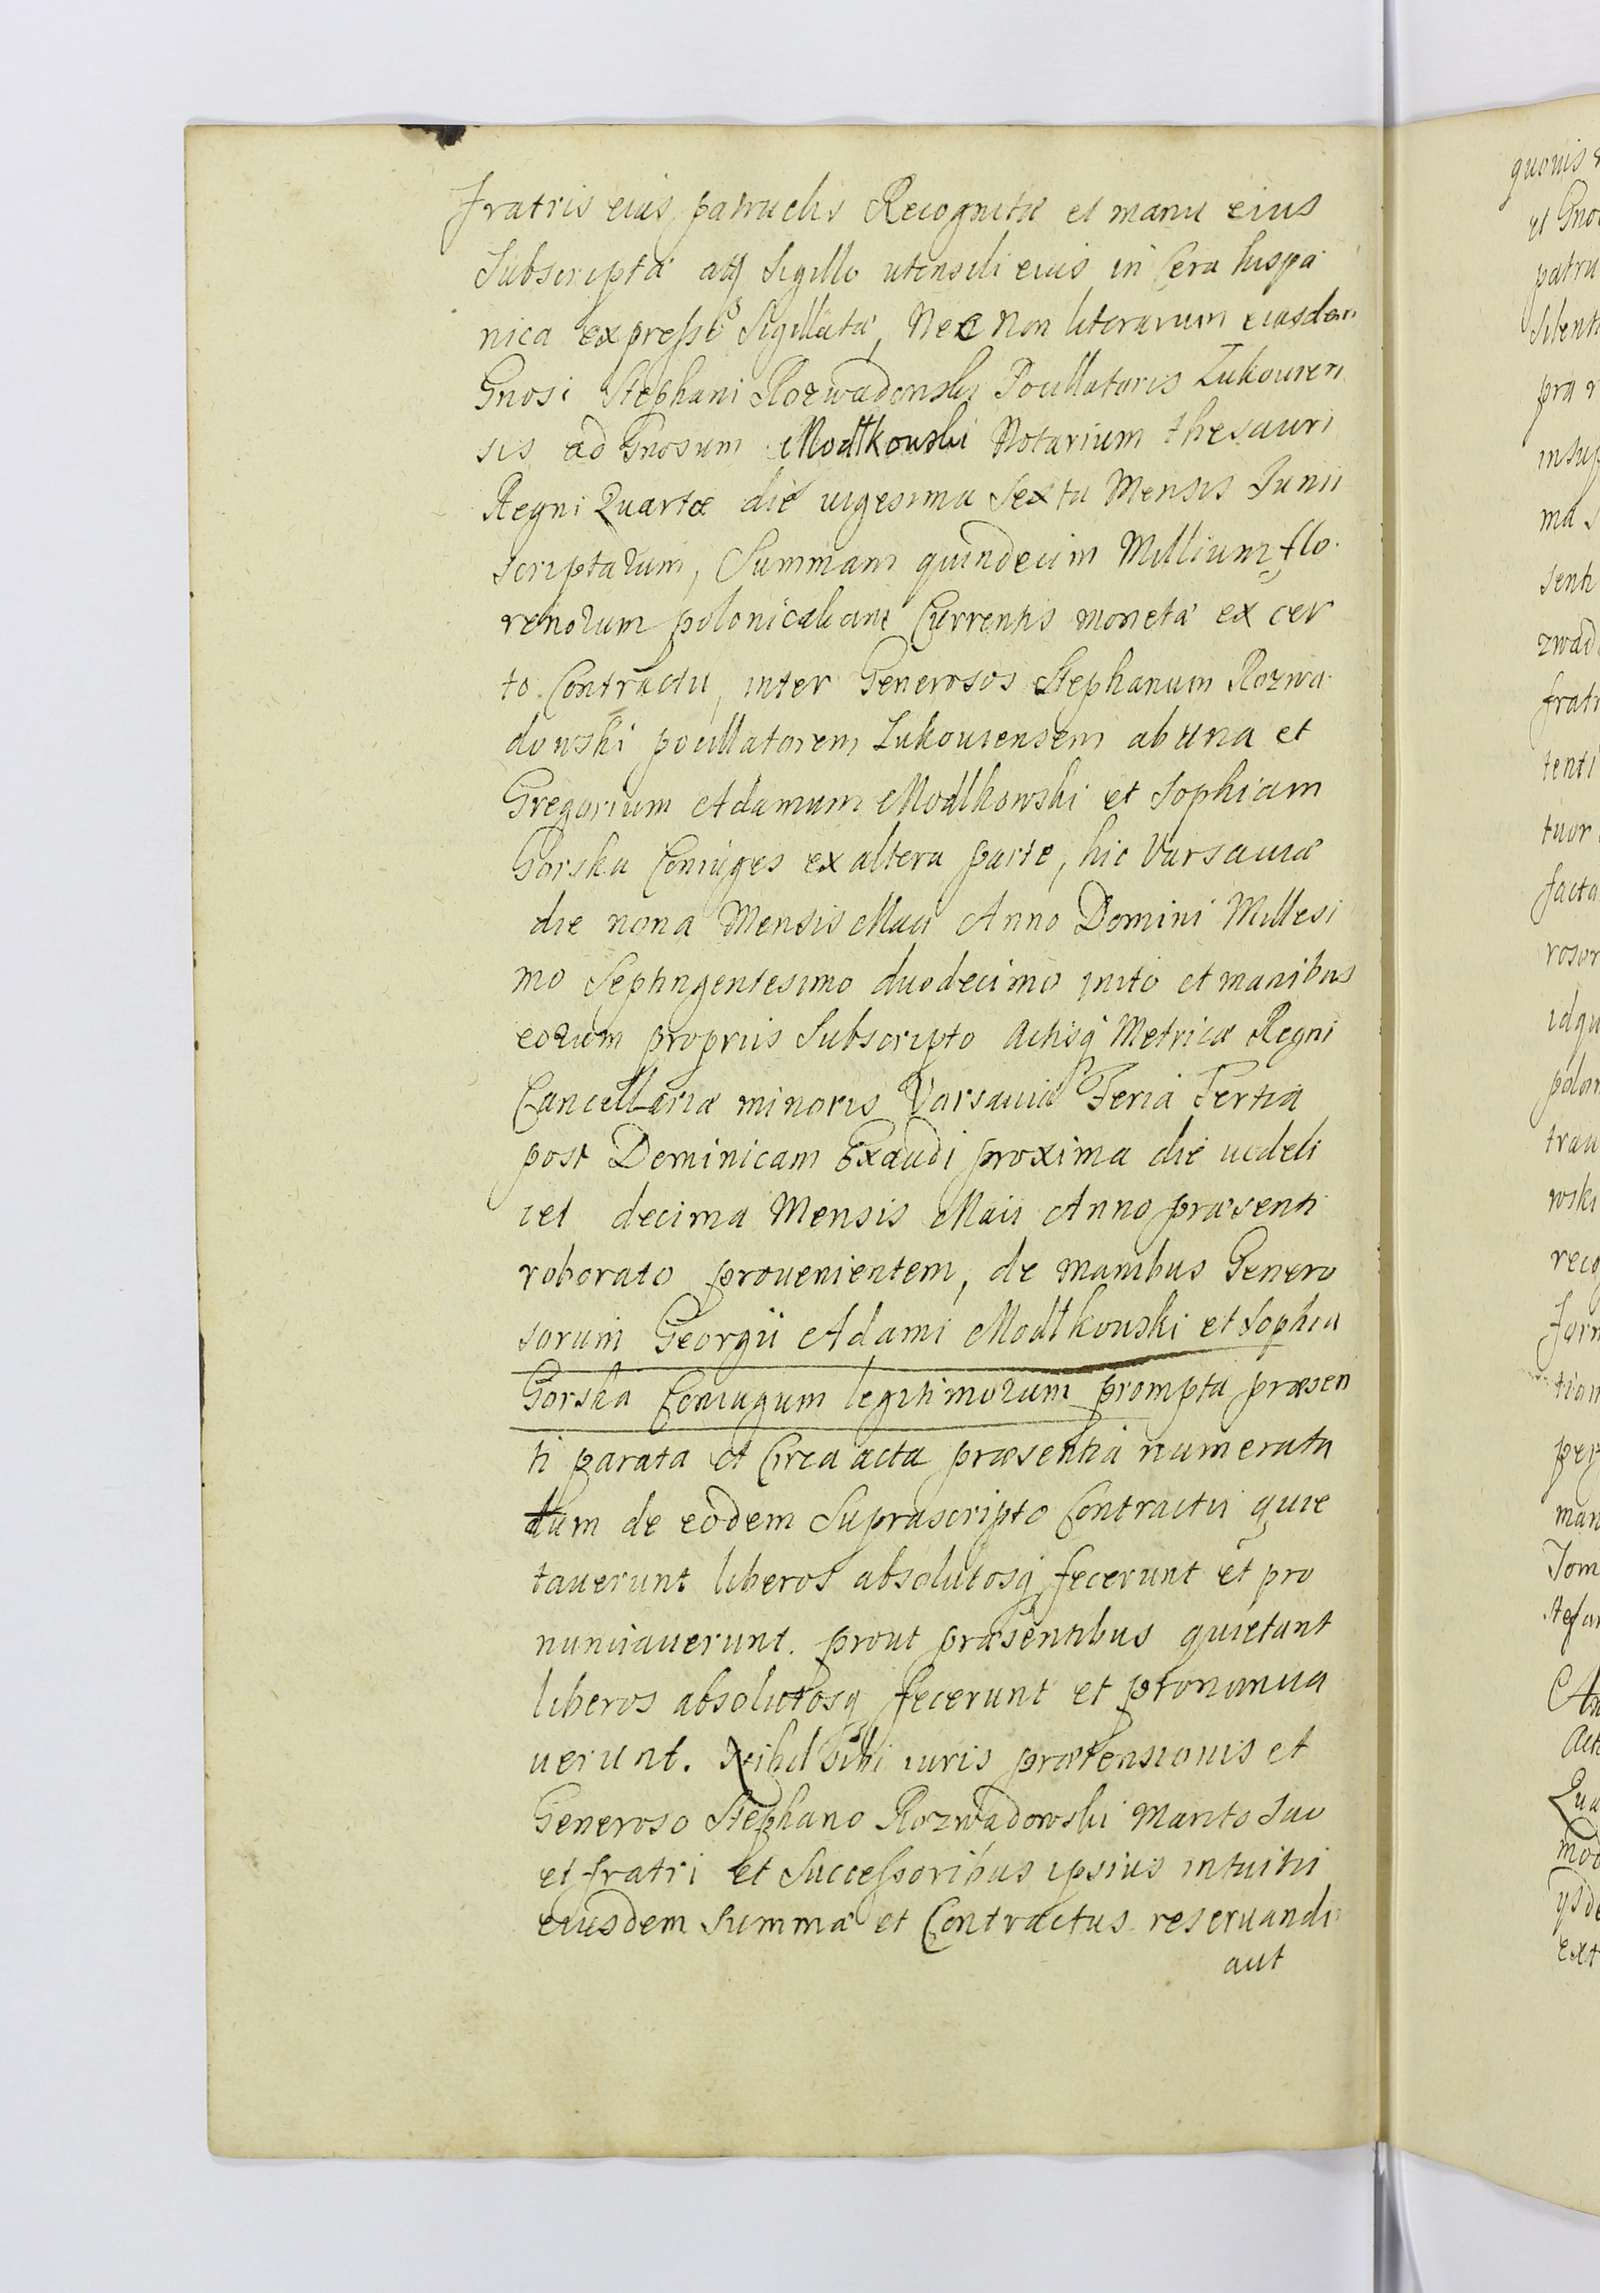 fratris eius patruelis Recognitæ et manu eius
Subscriptæ atq Sigillo utensili eius in Cera hispa
nica expresso Sigillatæ, Nec Non literarum eiusdem
Gnosi Stephani Rozwadowski Pocillatoris Lukouien
sis ad Gnosum Modlkouski Notarium thesauri
Regni Quartæ die uigesima Sexta Mensis Junii
scriptarum, Summam quindecim Millium flo
renorum polonicalium Currentis monetæ ex cer
to Contractu, inter Generosos Stephanum Rozwa
dowski pocillatorem Lukouiensem ab una et
Gregorium Adamum Modlkowski et Sophiam
Gorska Coniuges ex altera parte, hic Varsauiæ
die nona Mensis Maii Anno Domini Millesi
mo Septingentesimo duodecimo inito et manibus
eorum propriis Subscripto Actisq Metricæ Regni
Cancellariæ minoris Varsauiæ Feria Tertia
post Dominicam Exaudi proxima die uidéli
cet decima Mensis Maii Anno præsenti
roborato prouenientem, de manibus Genero
sorum Georgii Adami Modlkouski et Sophia
Gorska Coniugum legitimorum prompta præsen
ti parata et Circa acta præsentia numerata
dum de eodem Suprascripto Contractu quie
tauerunt liberos absolutosq fecerunt et pro
nunciauerunt. prout præsentibus quietant
liberos absolutosq fecerunt et pronuncia
uerunt. Nihil sibi iuris prætensionis et
Generoso Stephano Rozwadowski Marito Suo
et fratri et Successoribus ipsius intuitu
eiusdem Summæ et Contractus reseruandi
aut